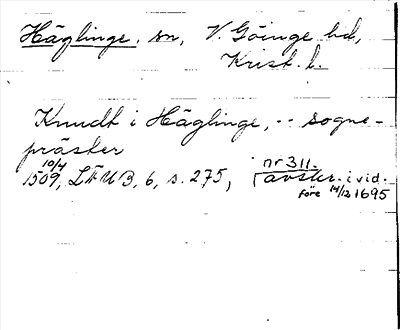 Häglinge, sn, V. Göinge hd,
Krist. l.
Knudt i Häglinge, -- sogne-
präster
10/4 1509, LÄUB, 6, s. 275, nr 311.
avskr. i vid.
före 14/12 1695